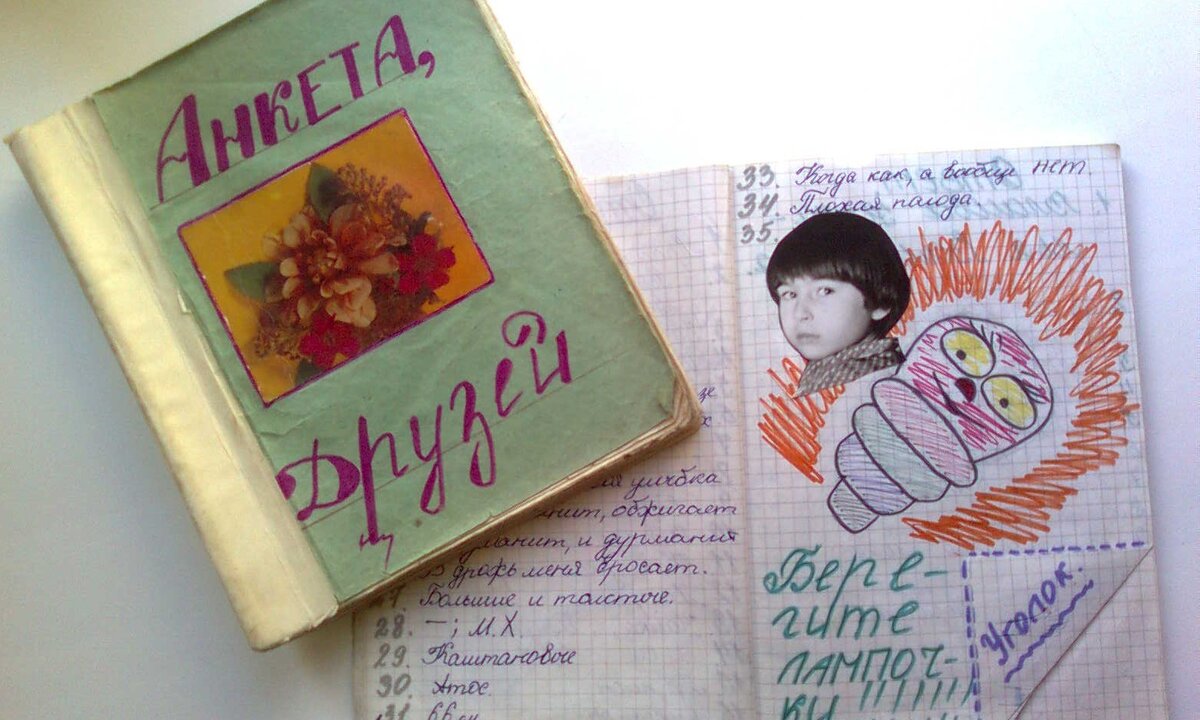 АНКЕТА,
Друзей
зе
х
улыбка
нит, обжигает
манит, и дурманит
В дрожь меня бросает.
27. Большие и толстые.
28. –; М.Х.
29. Каштановые
30. Атос.
31. 66
33. Когда как, а вообще нет.
34. Плохая погода.
35.
Бере-
гите
лампоч-
ку !!!!!!!
Уголок.